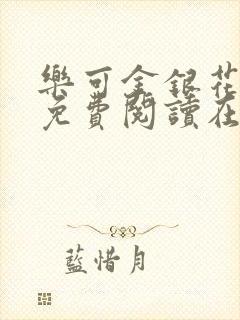 樂可金銀花
免費閱讀在
藍惜月